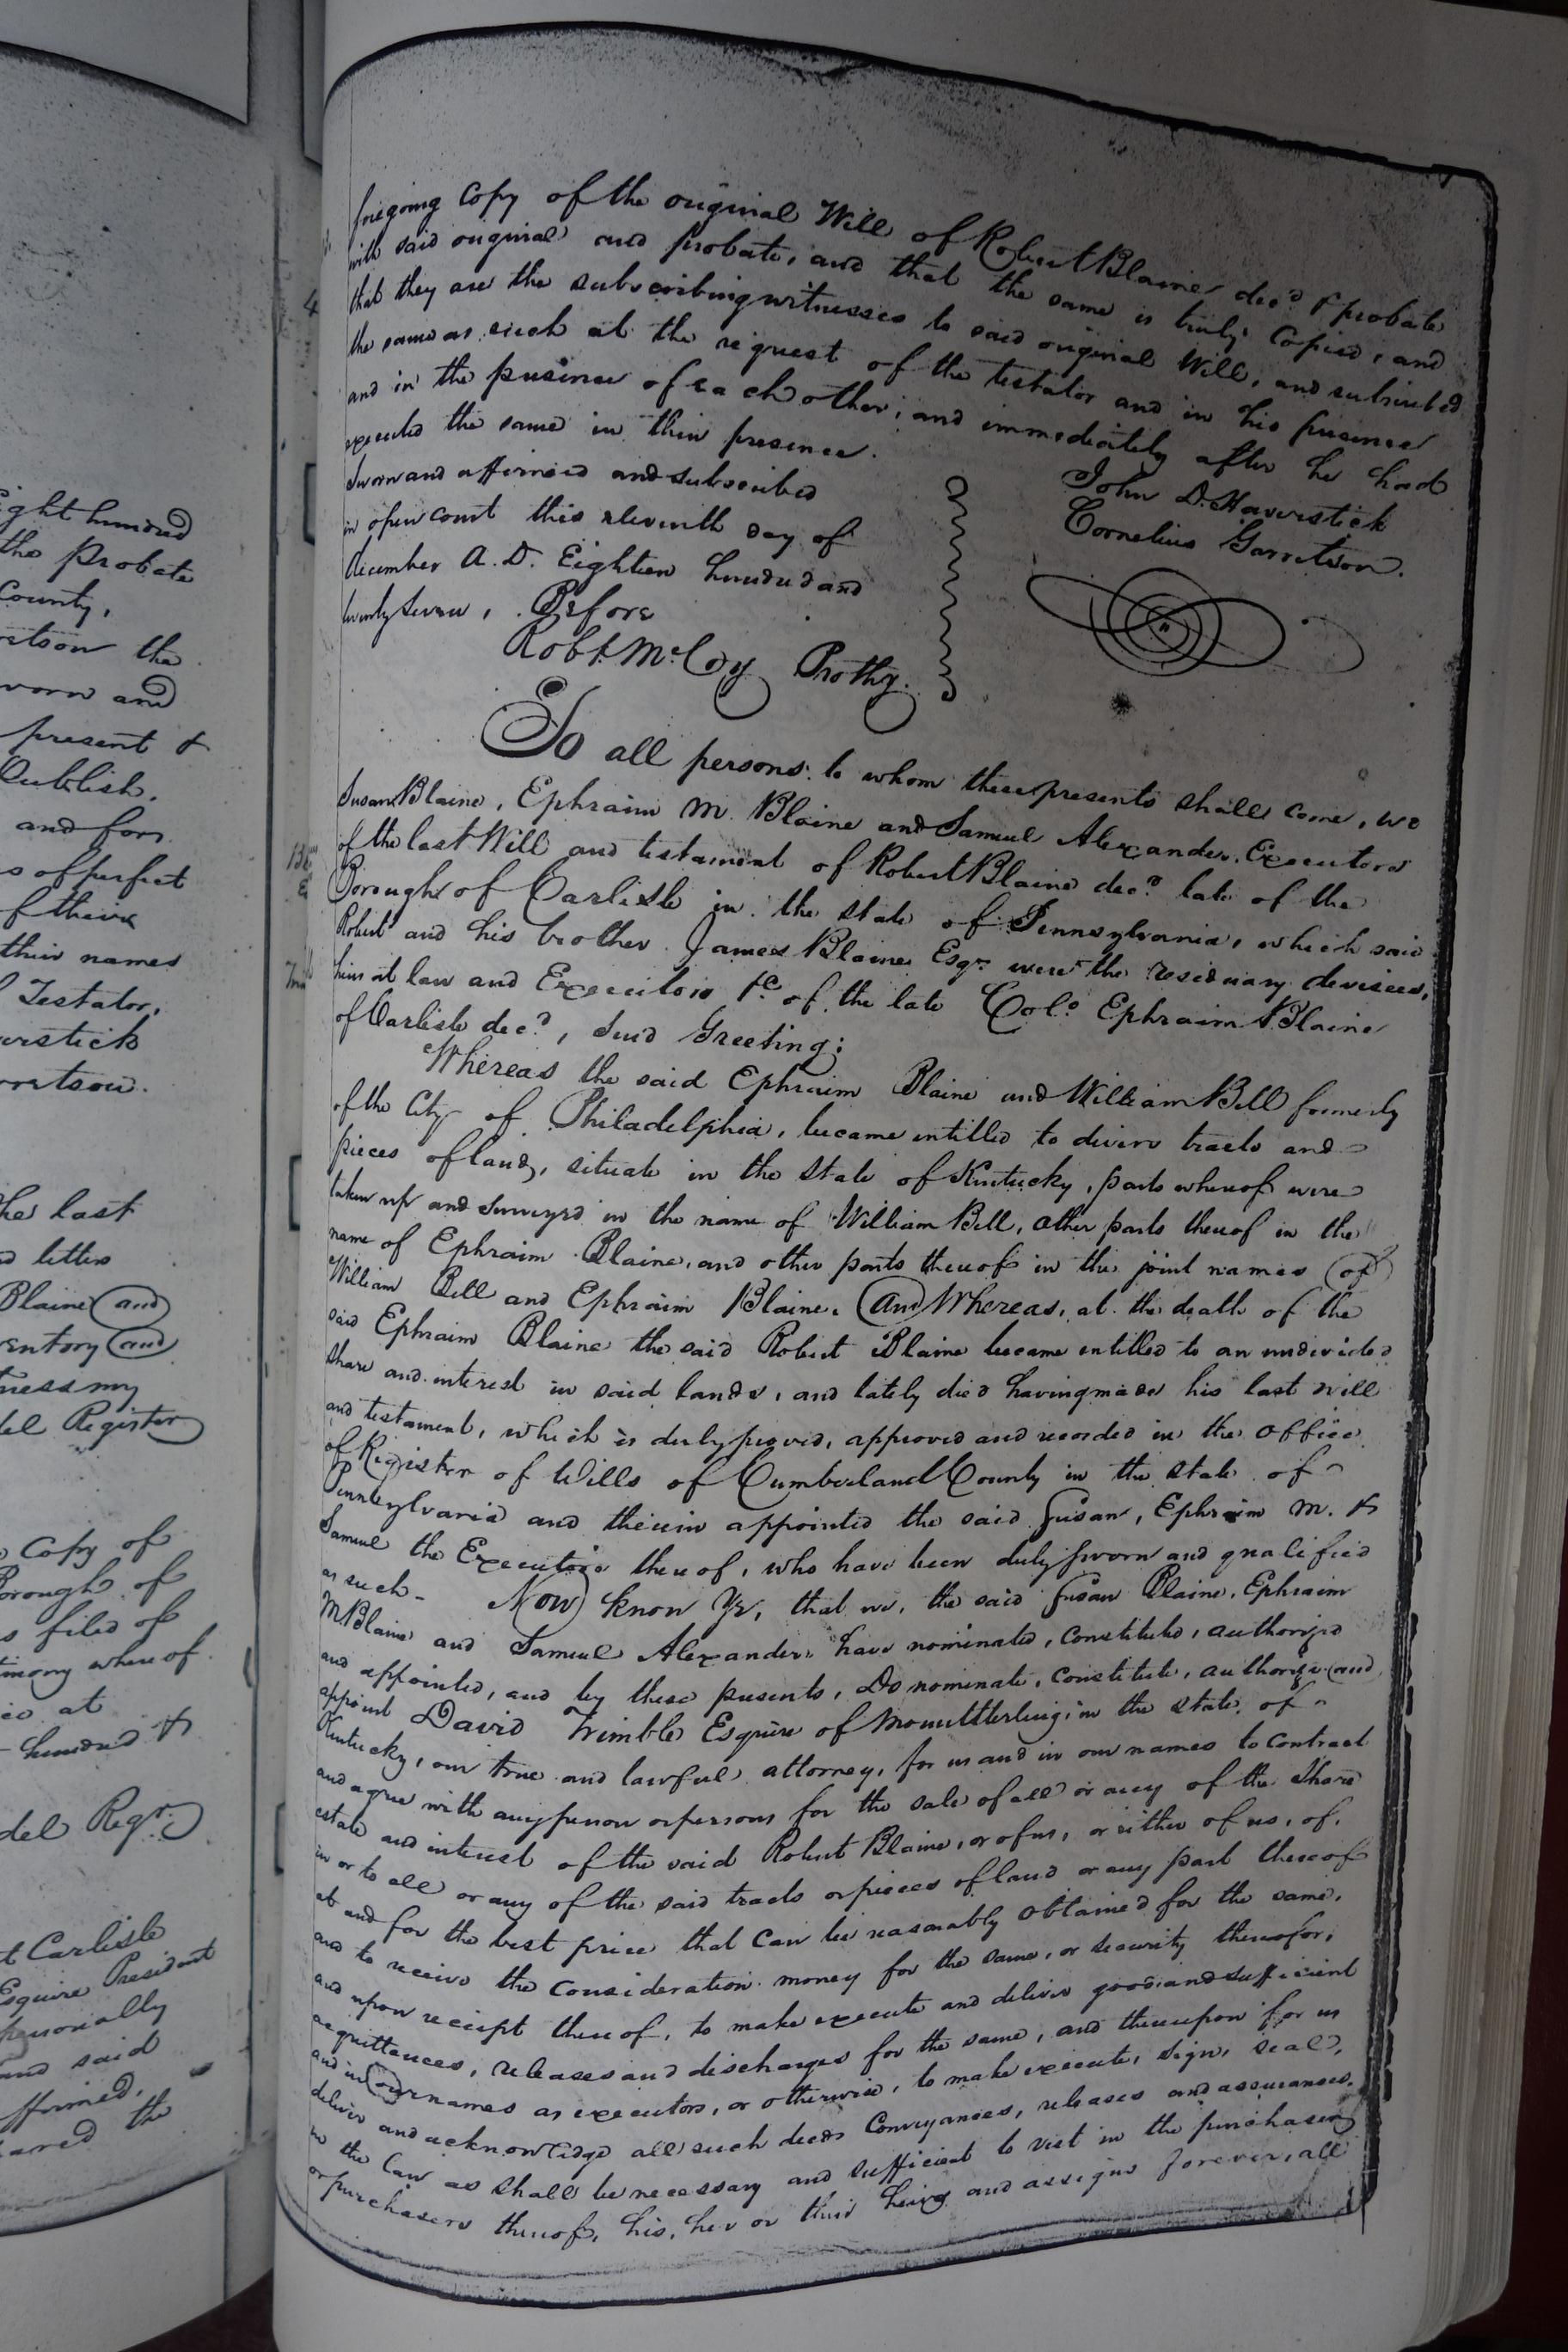 ight hundred
the Probate
County,
retson the
worn and
present &
Publish,
and for
s of perfect
f their
their names
Testator,
erstick
rretson.
he last
letters
Blaine and
ventory and
tness my
del Register
Copy of
Borough of
s filed of
timony whereof
at
hundred &
del Regr.
t Carlisle
Esquire President
personally
and said
ffirmed,
ared the
4
foregoing Copy of the original Will of Robert Blaine decd & probate
with said original and probate, and that the same is truly Copied, and
that they are the subscribing witnesses to said original Will, and subscribed
the same as such at the request of the testator and in his presence
and in the presence of each other, and immediately after he had
executed the same in their presence.
John D. Haverstick
Cornelius Garretson.
Sworn and affirmed and subscribed
in open court this eleventh day of
december A.D. Eighteen hundred and
twenty seven, Before
Robt. McCoy Prothy.
To all persons to whom these presents shall come, we
Susan Blaine, Ephraim M. Blaine and Samuel Alexander, Executors
of the last Will and testament of Robert Blaine decd late of the
Borough of Carlisle in the state of Pennsylvania, which said
Robert and his brother James Blaine Esqr were the residuary devisees,
heirs at law and Executors &c of the late Colo Ephraim Blaine
of Carlisle decd, Send Greeting:
Whereas the said Ephraim Blaine and William Bell formerly
of the City of Philadelphia, became intitled to divers tracts and
pieces of land, situate in the state of Kentucky, parts whereof were
taken up and Surveyed in the name of William Bell, other parts thereof in the
name of Ephraim Blaine, and other parts thereof in the joint names of
William Bell and Ephraim Blaine. And Whereas, at the death of the
said Ephraim Blaine the said Robert Blaine became intitled to an undivided
share and interest in said lands, and lately died having made his last will
and testament, which is duly proved, approved and recorded in the office
of Register of Wills of Cumberland County in the state of
Pennsylvania and therein appointed the said Susan, Ephraim M. &
Samuel the Executors thereof, who have been duly sworn and qualified
as such - Now know Ye, that we, the said Susan Blaine, Ephraim
M. Blaine and Samuel Alexander have nominated, constituted, authorized
and appointed, and by these presents, Do nominate, constitute, authorize and
appoint David Trimble Esquire of Mountsterling in the state of
Kentucky, our true and lawful attorney, for us and in our names to contract
and agree with any person or persons for the sale of all or any of the Share
estate and interest of the said Robert Blaine, or of us, or either of us, of,
in or to all or any of the said tracts or pieces of land or any part thereof
at and for the best price that can be reasonably obtained for the same,
and to receive the consideration money for the same, or security therefor,
and upon receipt thereof, to make execute and deliver good and sufficient
acquittances, releases and discharges for the same, and thereupon for us
and in our names as executors, or otherwise, to make execute, sign, seal,
deliver and acknowledge all such deeds Conveyances, releases and assurances
in the Law as shall be necessary and sufficient to vest in the purchaser
or purchasers thereof, his, her or their heirs and assigns forever, all